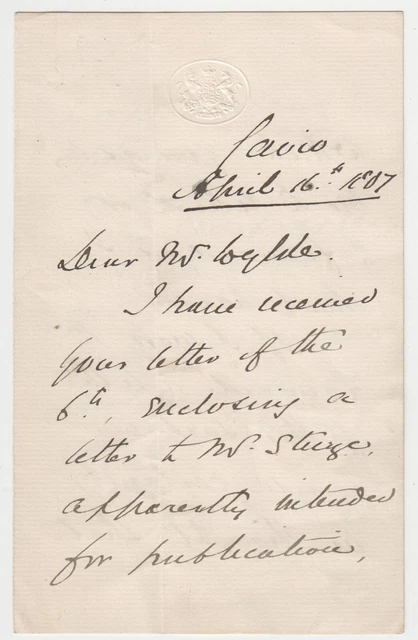 Cairo
April 16.th 1887
Dear Mr. Wylde.
I have received
your letter of the
6th, enclosing a
letter to Mr. Sturge,
apparently intended
for publication,